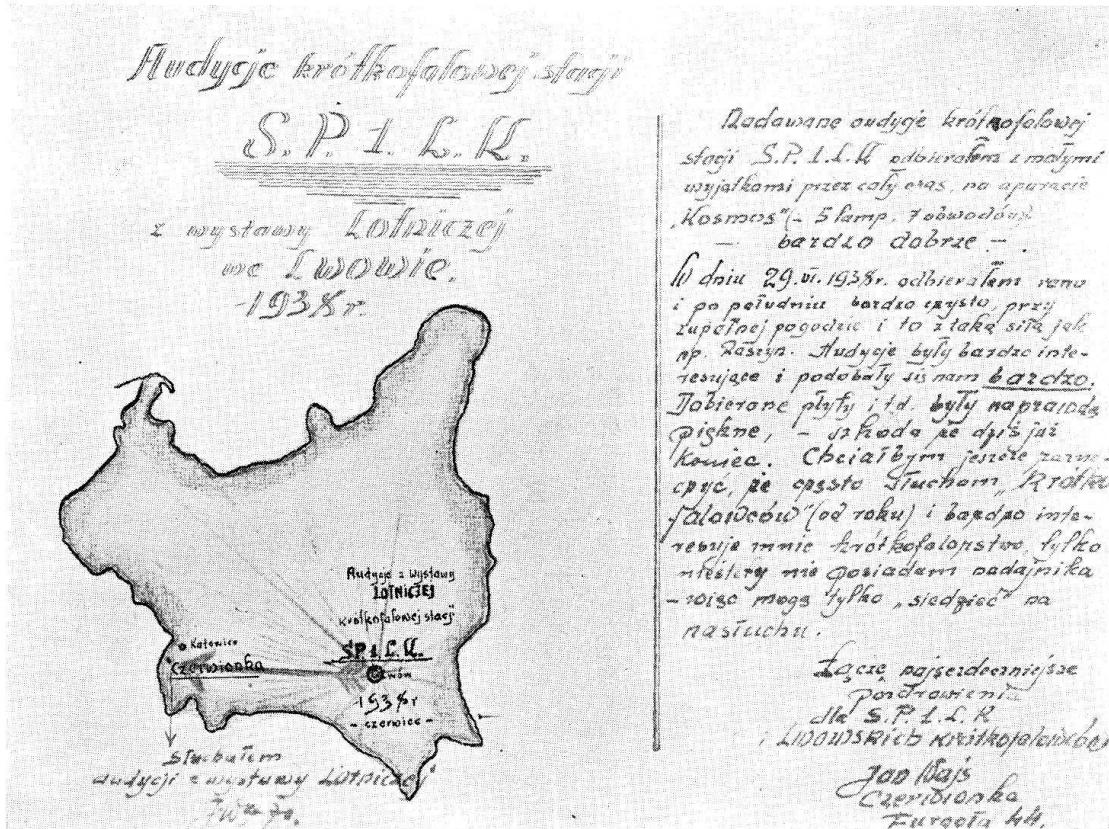 Audycje krótkofalowej stacji
S.P.1.L.K.
z wystawy Lotniczej
we Lwowie.
-1938r.
Audycje z Wystawy
LOTNICZEJ
krótkofalowej stacji
SP.1.L.K.
Lwów
1938r
- czerwiec -
Katowice
Czerwionka
Słuchałem
audycji z wystawy Lotniczej
Nadawane audycje krótkofalowej
stacji S.P.1.L.K odbierałem z małymi
wyjątkami przez cały czas, na aparacie
„Kosmos" (- 5 lamp, 7 obwodów)
— bardzo dobrze —.
W dniu 29.VI.1938r. odbierałem rano
i po południu bardzo czysto, przy
zupełnej pogodzie i to z taką siłą jak
np. Raszyn. Audycje były bardzo inte-
resujące i podobały się nam bardzo.
Dobierane płyty i t.d. były naprawdę
piękne, - szkoda że dziś już
koniec. Chciałbym jeszcze zazna-
czyć, że często słucham „Krótko
falowców" (od roku) i bardzo inte-
resuje mnie krótkofalarstwo, tylko
niestety nie posiadam nadajnika
- więc mogę tylko „siedzieć" na
nasłuchu.
Łączę najserdeczniejsze
Pozdrowienia
dla S.P.1.L.K
i Lwowskich krótkofalowców
Jan Wajs
Czerwionka
Furgoła 44.